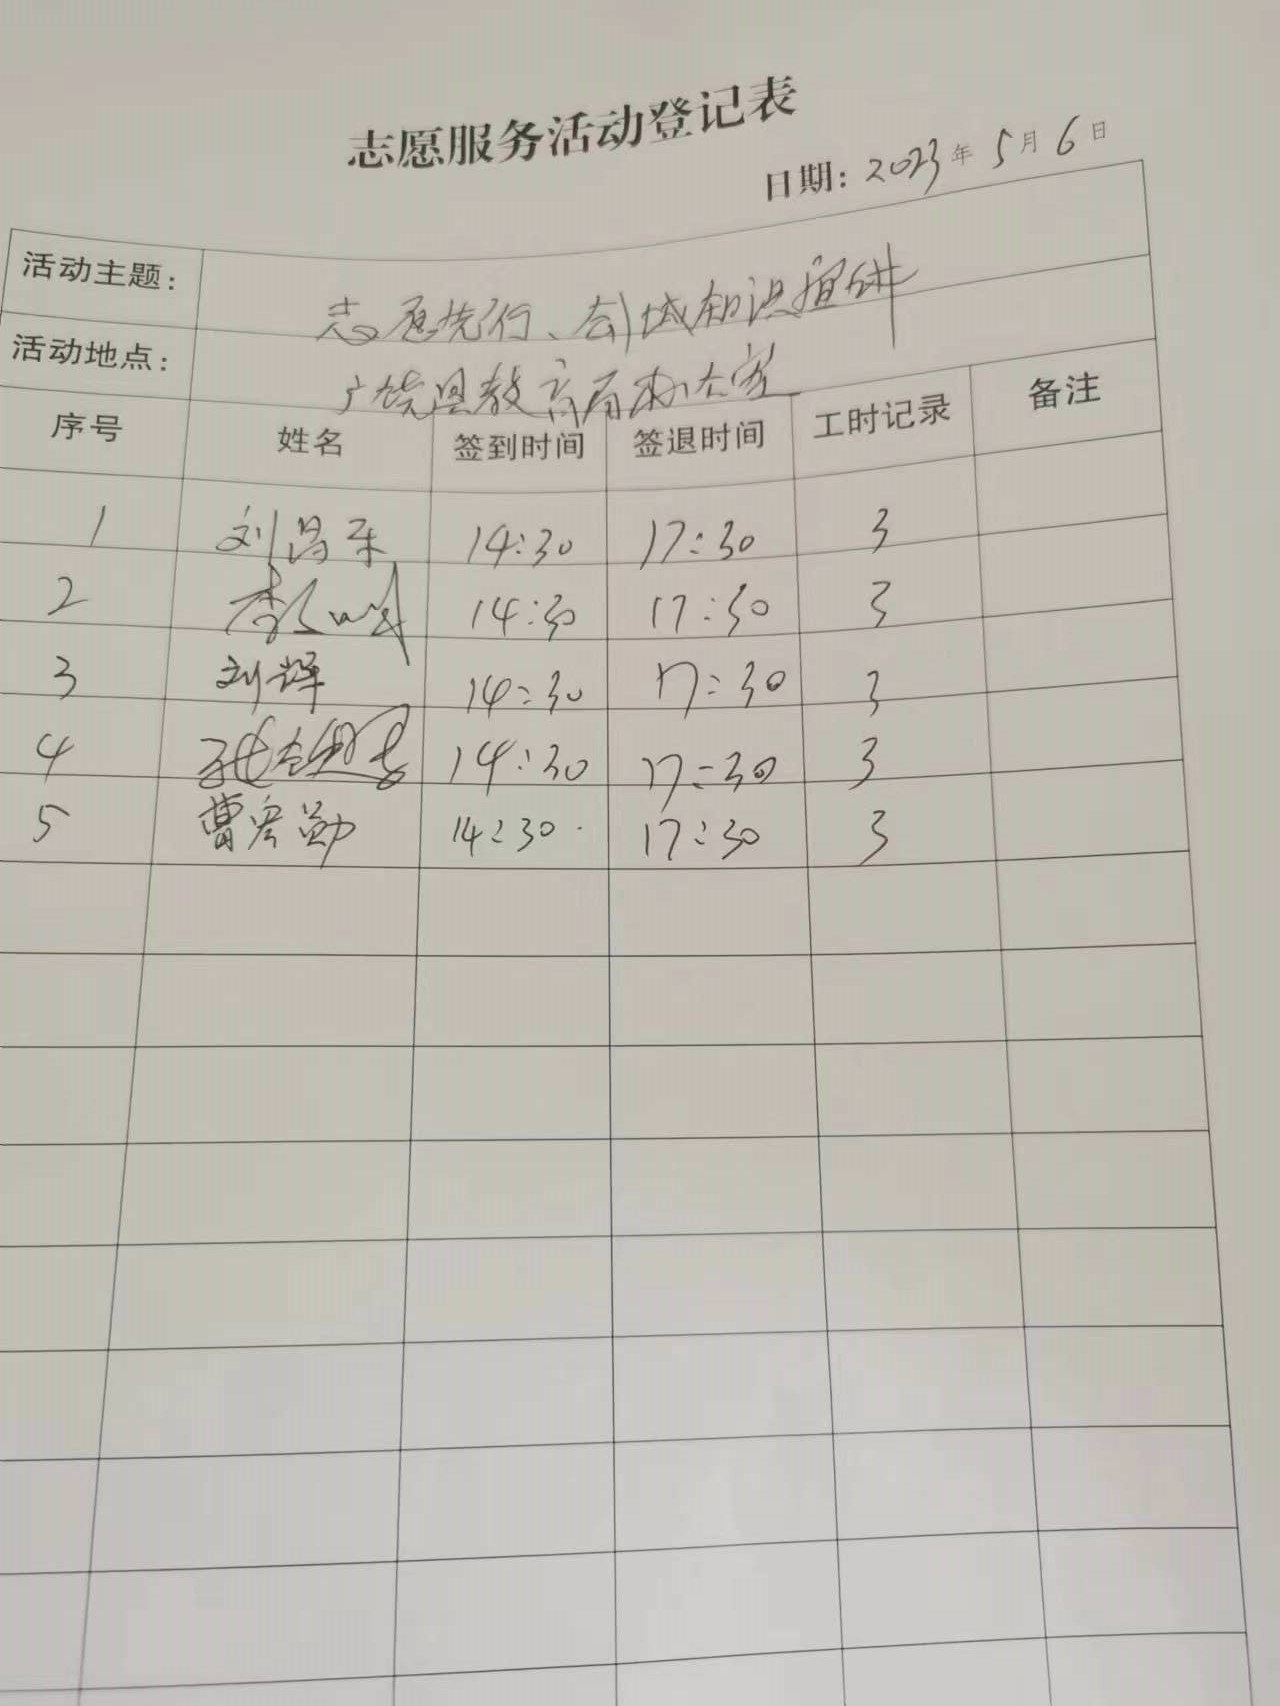 志愿服务活动登记表
日期：2023年5月6日
活动主题： 志愿先行、创城知识宣讲
活动地点： 广饶县教育局办公室
序号 姓名 签到时间 签退时间 工时记录 备注
1 刘昌东 14:30 17:30 3
2 李 14:30 17:30 3
3 刘辉 14:30 17:30 3
4 14:30 17:30 3
5 曹宏勋 14:30 17:30 3